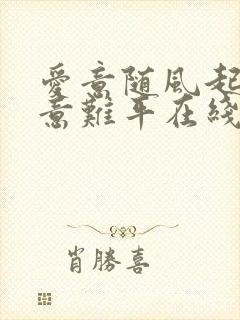 愛意随风起
意難平在綫
肖勝喜